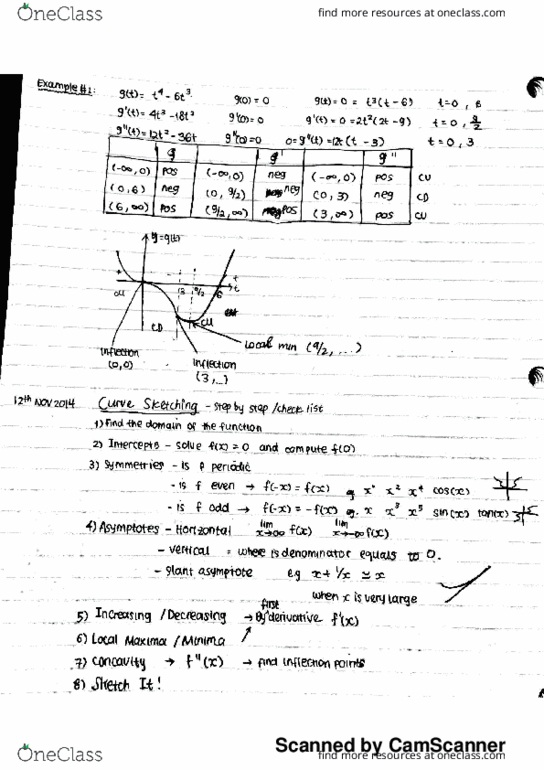 OneClass find more resources at oneclass.com
Example #1: g(t) = t⁴ - 6t³ g(0) = 0 g(t) = 0 = t³(t - 6) t = 0, 6
g'(t) = 4t³ - 18t² g'(0) = 0 g'(t) = 0 = 2t²(2t - 9) t = 0, 9/2
g''(t) = 12t² - 36t g''(0) = 0 0 = g''(t) = 12t(t - 3) t = 0, 3
g g' g''
(-∞, 0) pos (-∞, 0) neg (-∞, 0) pos CU
(0, 6) neg (0, 9/2) neg (0, 3) neg CD
(6, ∞) pos (9/2, ∞) pos (3, ∞) pos CU
y = g(t)
+ - - + t
CU 3 9/2 6
CD CU
Local min (9/2, ...)
inflection (0,0)
inflection (3, ...)
12th NOV 2014 Curve Sketching - step by step / check list
1) Find the domain of the function
2) Intercepts - solve f(x) = 0 and compute f(0)
3) Symmetries - is f periodic
- is f even → f(-x) = f(x) eg x⁰ x² x⁴ cos(x)
- is f odd → f(-x) = -f(x) eg. x x³ x⁵ sin(x) tan(x)
4) Asymptotes - Horizontal lim x→∞ f(x) lim x→-∞ f(x)
- vertical = where is denominator equals to 0.
- slant asymptote e.g x + 1/x ≃ x
when x is very large
5) Increasing / Decreasing → By first derivative f'(x)
6) Local Maxima / Minima
7) Concavity → f''(x) → find inflection points
8) Sketch It!
Scanned by CamScanner
OneClass find more resources at oneclass.com